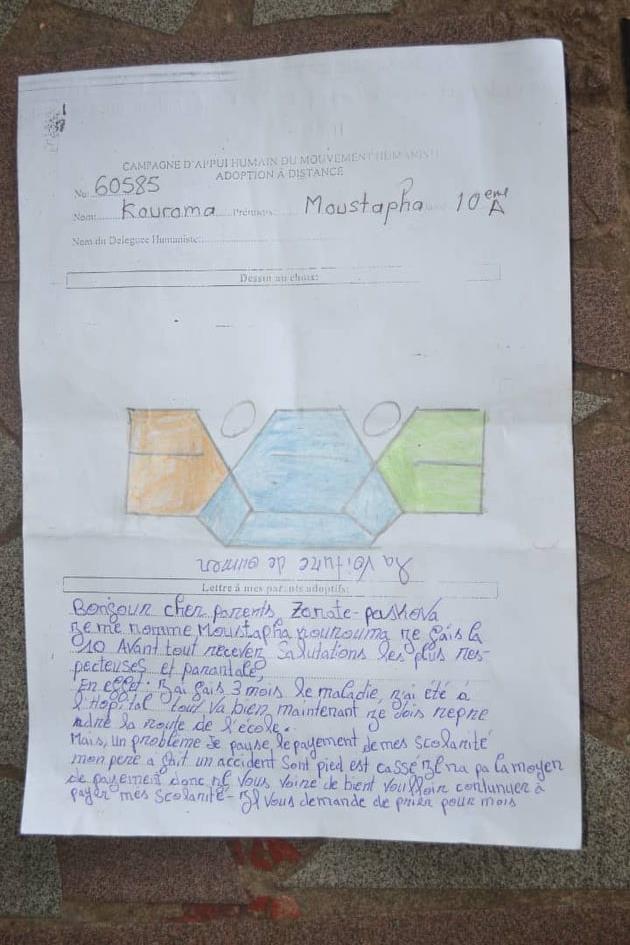 CAMPAGNE D'APPUI HUMAIN DU MOUVEMENT HUMANISTE
ADOPTION À DISTANCE
No: 60585
Nom: Kourama Prénoms: Moustapha 10eme A
Nom du Deleguee Humaniste:
Dessin au choix:
La Voiture de
Lettre à mes parents adoptifs:
Bonjour cher parents, Zonate-paskova
ze me nomme Moustapha kourouma ze fais la
10 Avant tout recever, Salutations les plus res-
pecteuses et parantale,
En effet: zai fais 3 mois le maladie, z'ai été à
l'Hopital tout va bien, maintenant ze dois repre
ndre la route de l'école.
Mais, un problème se pause, le payement de mes scolarité
mon pere a fait un accident sont pied est cassé zl na pa la moyen
de payement donc zl vous voire de bient voulloir contunuer à
payer mes scolarité- zl vous demande de prier pour mois